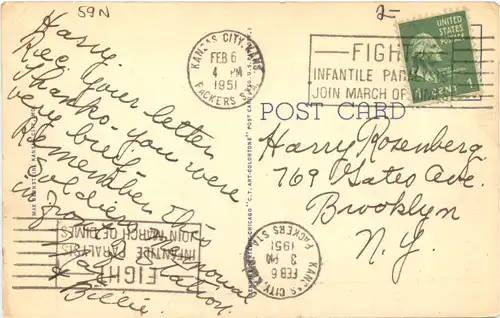 59N
2-
Harry.
Rec your letter
Thanks - you were
very brief.
Remember this
soldiers
in front
station.
&
Billie.
MAX BERNSTEIN, KANSAS CITY, MO.
GENUINE CURTEICH-CHICAGO "C.T. ART-COLORTONE" POST CARD (REG. U.S. PAT. OFF.)
KANSAS CITY, KANS.
FEB 6
4 PM
1951
PACKERS STA.
FIGHT
INFANTILE PARALYSIS
JOIN MARCH OF DIMES
UNITED
STATES
POSTAGE
1 CENT 1
POST CARD
Harry Rosenberg
769 Gates Ave.
Brooklyn
N.Y.
KANSAS CITY, KANS.
FEB 6
3 PM
1951
PACKERS STA.
FIGHT
INFANTILE PARALYSIS
JOIN MARCH OF DIMES